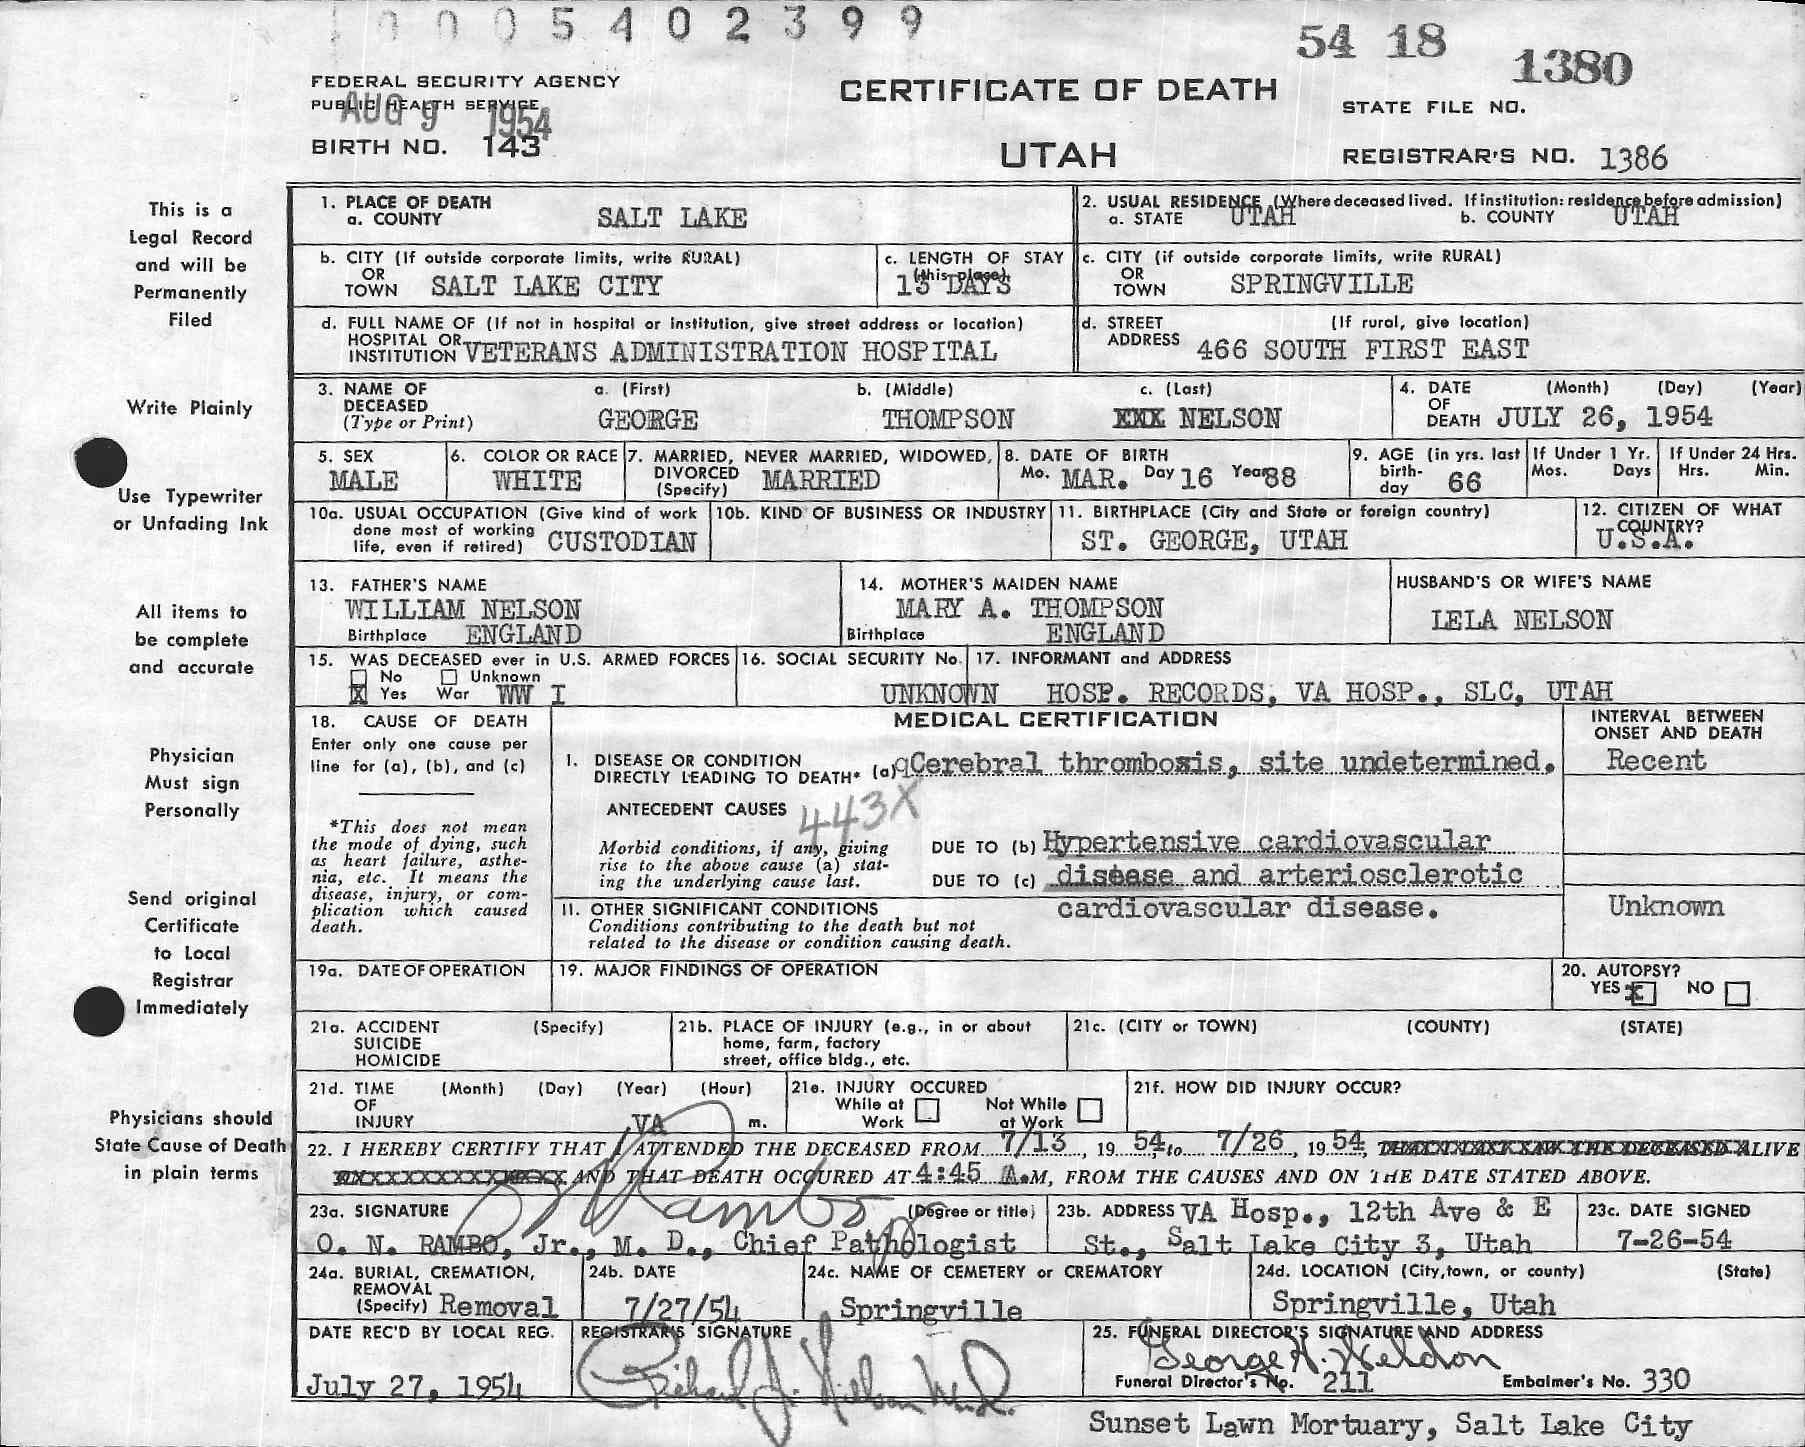 0005402399
54 18 1380
FEDERAL SECURITY AGENCY
PUBLIC HEALTH SERVICE
AUG 9 1954
BIRTH NO. 143
CERTIFICATE OF DEATH
UTAH
STATE FILE NO.
REGISTRAR'S NO. 1386
This is a
Legal Record
and will be
Permanently
Filed
Write Plainly
Use Typewriter
or Unfading Ink
All items to
be complete
and accurate
Physician
Must sign
Personally
Send original
Certificate
to Local
Registrar
Immediately
Physicians should
State Cause of Death
in plain terms
1. PLACE OF DEATH
a. COUNTY SALT LAKE
2. USUAL RESIDENCE (Where deceased lived. If institution: residence before admission)
a. STATE UTAH b. COUNTY UTAH
b. CITY (If outside corporate limits, write RURAL)
OR
TOWN SALT LAKE CITY
c. LENGTH OF STAY
(this place)
13 DAYS
c. CITY (if outside corporate limits, write RURAL)
OR
TOWN SPRINGVILLE
d. FULL NAME OF (If not in hospital or institution, give street address or location)
HOSPITAL OR
INSTITUTION VETERANS ADMINISTRATION HOSPITAL
d. STREET (If rural, give location)
ADDRESS 466 SOUTH FIRST EAST
3. NAME OF DECEASED (Type or Print)
a. (First) b. (Middle) c. (Last)
GEORGE THOMPSON XXX NELSON
4. DATE (Month) (Day) (Year)
OF
DEATH JULY 26, 1954
5. SEX
MALE
6. COLOR OR RACE
WHITE
7. MARRIED, NEVER MARRIED, WIDOWED,
DIVORCED (Specify) MARRIED
8. DATE OF BIRTH
Mo. MAR. Day 16 Year 88
9. AGE (in yrs. last
birth-
day 66
If Under 1 Yr.
Mos. Days
If Under 24 Hrs.
Hrs. Min.
10a. USUAL OCCUPATION (Give kind of work
done most of working
life, even if retired) CUSTODIAN
10b. KIND OF BUSINESS OR INDUSTRY
11. BIRTHPLACE (City and State or foreign country)
ST. GEORGE, UTAH
12. CITIZEN OF WHAT
COUNTRY?
U.S.A.
13. FATHER'S NAME
WILLIAM NELSON
Birthplace ENGLAND
14. MOTHER'S MAIDEN NAME
MARY A. THOMPSON
Birthplace ENGLAND
HUSBAND'S OR WIFE'S NAME
LELA NELSON
15. WAS DECEASED ever in U.S. ARMED FORCES
No Unknown
X Yes War WW I
16. SOCIAL SECURITY No.
UNKNOWN
17. INFORMANT and ADDRESS
HOSP. RECORDS, VA HOSP., SLC, UTAH
18. CAUSE OF DEATH
Enter only one cause per
line for (a), (b), and (c)
*This does not mean
the mode of dying, such
as heart failure, asthe-
nia, etc. It means the
disease, injury, or com-
plication which caused
death.
MEDICAL CERTIFICATION
INTERVAL BETWEEN
ONSET AND DEATH
I. DISEASE OR CONDITION
DIRECTLY LEADING TO DEATH* (a) Cerebral thrombosis, site undetermined. Recent
ANTECEDENT CAUSES 443X
Morbid conditions, if any, giving
rise to the above cause (a) stat-
ing the underlying cause last.
DUE TO (b) Hypertensive cardiovascular
DUE TO (c) disease and arteriosclerotic
cardiovascular disease. Unknown
II. OTHER SIGNIFICANT CONDITIONS
Conditions contributing to the death but not
related to the disease or condition causing death.
19a. DATE OF OPERATION
19. MAJOR FINDINGS OF OPERATION
20. AUTOPSY?
YES X NO
21a. ACCIDENT (Specify)
SUICIDE
HOMICIDE
21b. PLACE OF INJURY (e.g., in or about
home, farm, factory
street, office bldg., etc.
21c. (CITY or TOWN) (COUNTY) (STATE)
21d. TIME (Month) (Day) (Year) (Hour)
OF
INJURY m.
21e. INJURY OCCURED
While at Work Not While at Work
21f. HOW DID INJURY OCCUR?
VA
22. I HEREBY CERTIFY THAT I ATTENDED THE DECEASED FROM 7/13, 19 54 to 7/26, 19 54, ALIVE
AND THAT DEATH OCCURED AT 4:45 A.M, FROM THE CAUSES AND ON THE DATE STATED ABOVE.
23a. SIGNATURE Rambo (Degree or title)
O. N. RAMBO, Jr., M. D., Chief Pathologist
23b. ADDRESS VA Hosp., 12th Ave & E
St., Salt Lake City 3, Utah
23c. DATE SIGNED
7-26-54
24a. BURIAL, CREMATION,
REMOVAL
(Specify) Removal
24b. DATE
7/27/54
24c. NAME OF CEMETERY or CREMATORY
Springville
24d. LOCATION (City, town, or county) (State)
Springville, Utah
DATE REC'D BY LOCAL REG.
July 27, 1954
REGISTRAR'S SIGNATURE
Richard J. Nielson M.D.
25. FUNERAL DIRECTOR'S SIGNATURE AND ADDRESS
George H. Weldon
Funeral Director's No. 211 Embalmer's No. 330
Sunset Lawn Mortuary, Salt Lake City